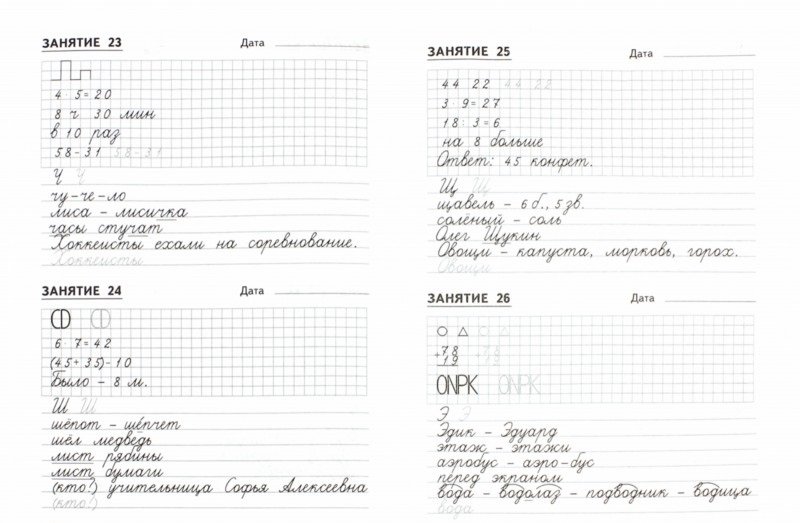 ЗАНЯТИЕ 23 Дата
4 · 5 = 20
8 ч 30 мин
в 10 раз
58 - 31 58 - 31
Ч Ч
чу - че - ло
лиса - лисичка
часы стучат
Хоккеисты ехали на соревнование.
Хоккеисты
ЗАНЯТИЕ 24 Дата
6 · 7 = 42
(45 + 35) - 10
Было - 8 м.
Ш Ш
шёпот - шепчет
шёл медведь
лист рябины
лист бумаги
(кто?) учительница Софья Алексеевна
(кто?)
ЗАНЯТИЕ 25 Дата
44 22 44 22
3 · 9 = 27
18 : 3 = 6
на 8 больше
Ответ: 45 конфет.
Щ Щ
щавель - 6 б., 5 зв.
солёный - соль
Олег Щукин
Овощи - капуста, морковь, горох.
Овощи
ЗАНЯТИЕ 26 Дата
+78 +78
19 19
ОNРК ОNРК
Э Э
Эдик - Эдуард
этаж - этажи
аэробус - аэро-бус
перед экраном
вода - водолаз - подводник - водица
вода